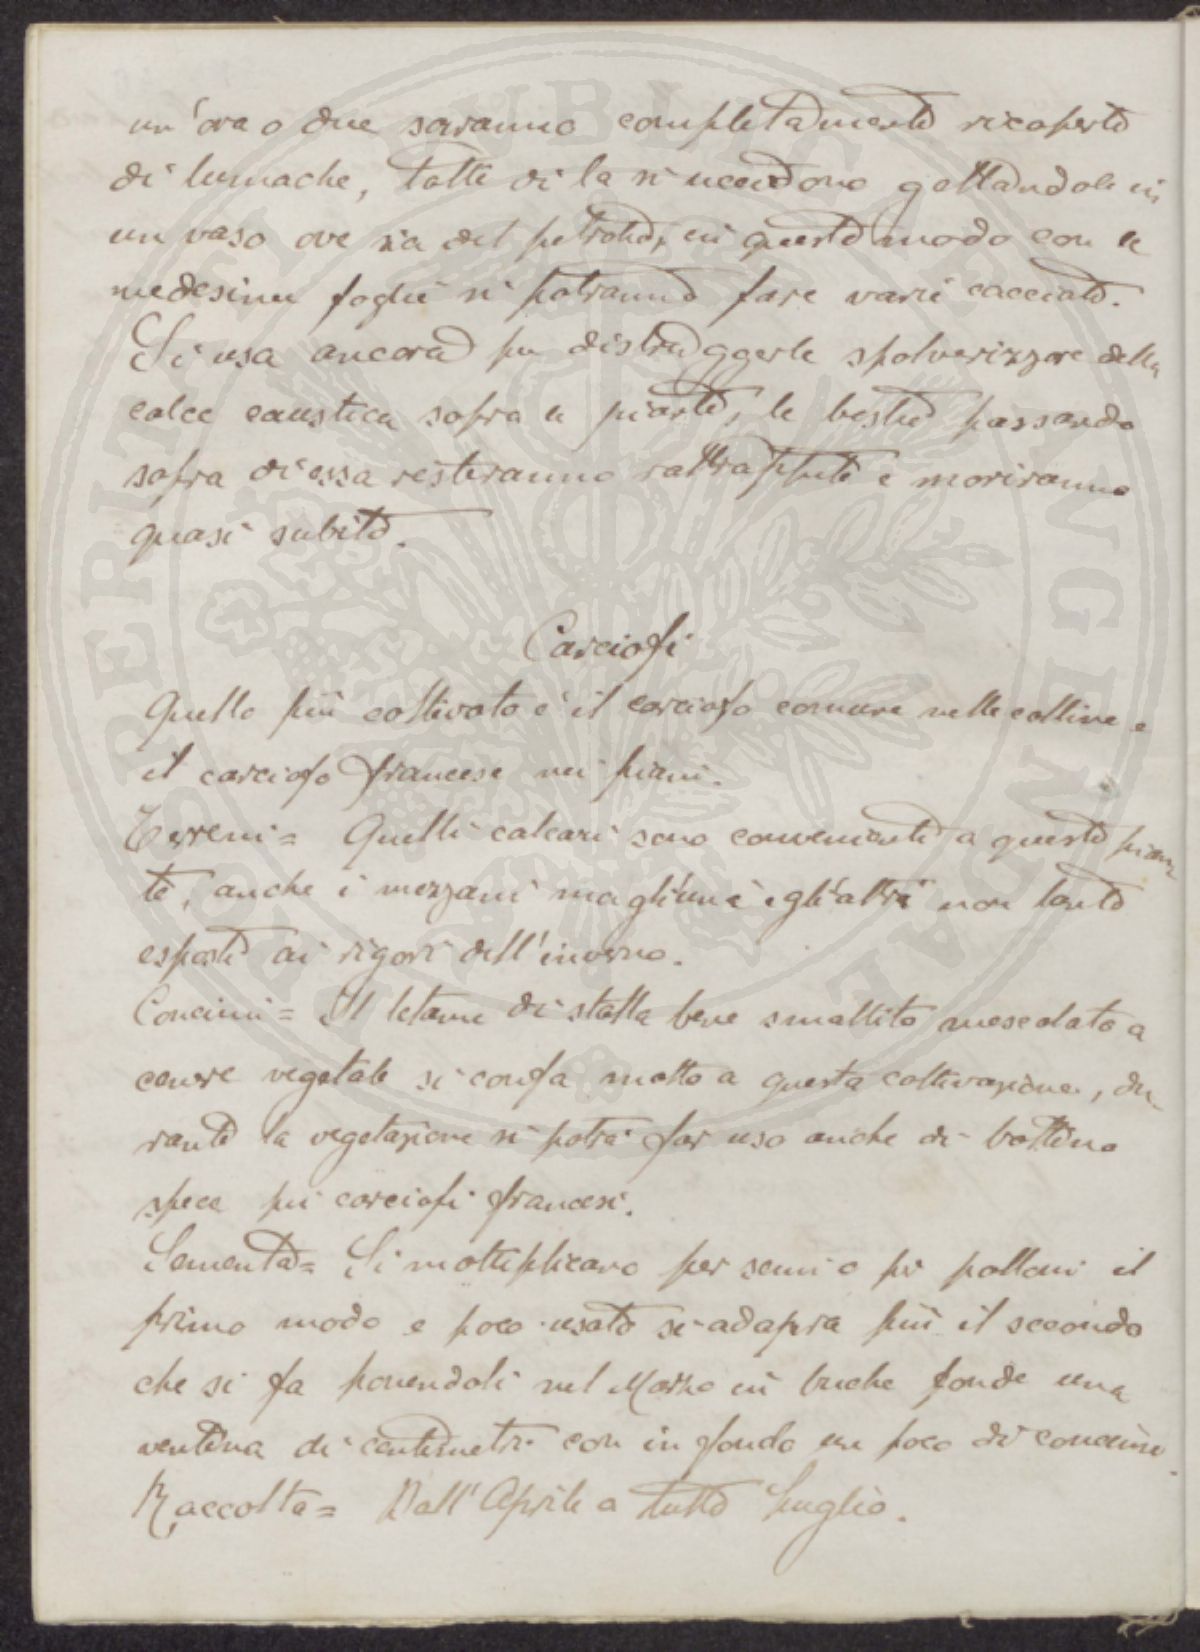 un'ora o due saranno completamente ricoperte
di lumache, tolte di la si uccidono gettandole in
un vaso ove sia del petrolio, in questo modo con le
medesime foglie si potranno fare varie cacciate.
Si usa ancora per distruggerle spolverizzare della
calce caustica sopra le piante, le bestie passando
sopra di essa resteranno rattrappite e moriranno
quasi subito.
Carciofi
Quello più coltivato è il carciofo comune nelle colline e
il carciofo francese nei piani.
Terreni = Quelli calcari sono convenienti a queste pian-
te, anche i mezzani magli'uni e gli'altri non tanto
esposti ai rigori dell'inverno.
Concimi = Il letame di stalla bene smaltito mescolato a
cenere vegetale si confa molto a questa coltivazione, du-
rante la vegetazione si potrà far uso anche di bottino
specie pei carciofi francesi.
Sementa = Si moltiplicano per semi o per polloni il
primo modo e poco usato si adopra più il secondo
che si fa ponendoli nel Marzo in buche fonde una
ventina di centimetri con in fondo un poco di concime.
Raccolta = Dall'Aprile a tutto Luglio.
PROSPERITAS PUBLICA AUGENDAE